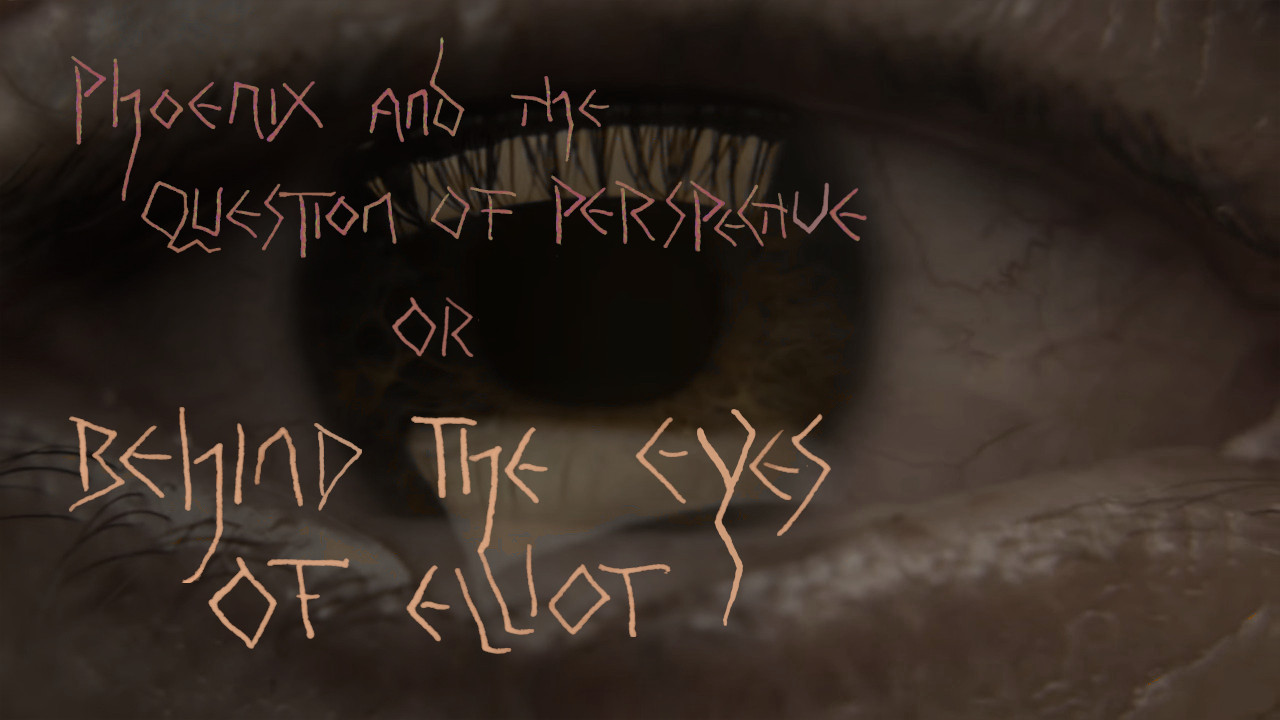 Phoenix and the
Question of Perspective
or
Behind the Eyes
of Elliot